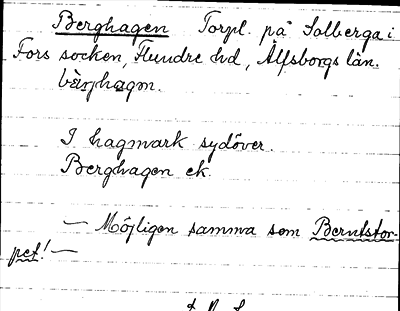 Berghagen Torpl. på Solberga i
Fors socken, Flundre hd, Älfsborgs län.
bærjhagɷn.
I hagmark sydöver.
Berghagen ek.
— Möjligen samma som Berntstor-
pet! —